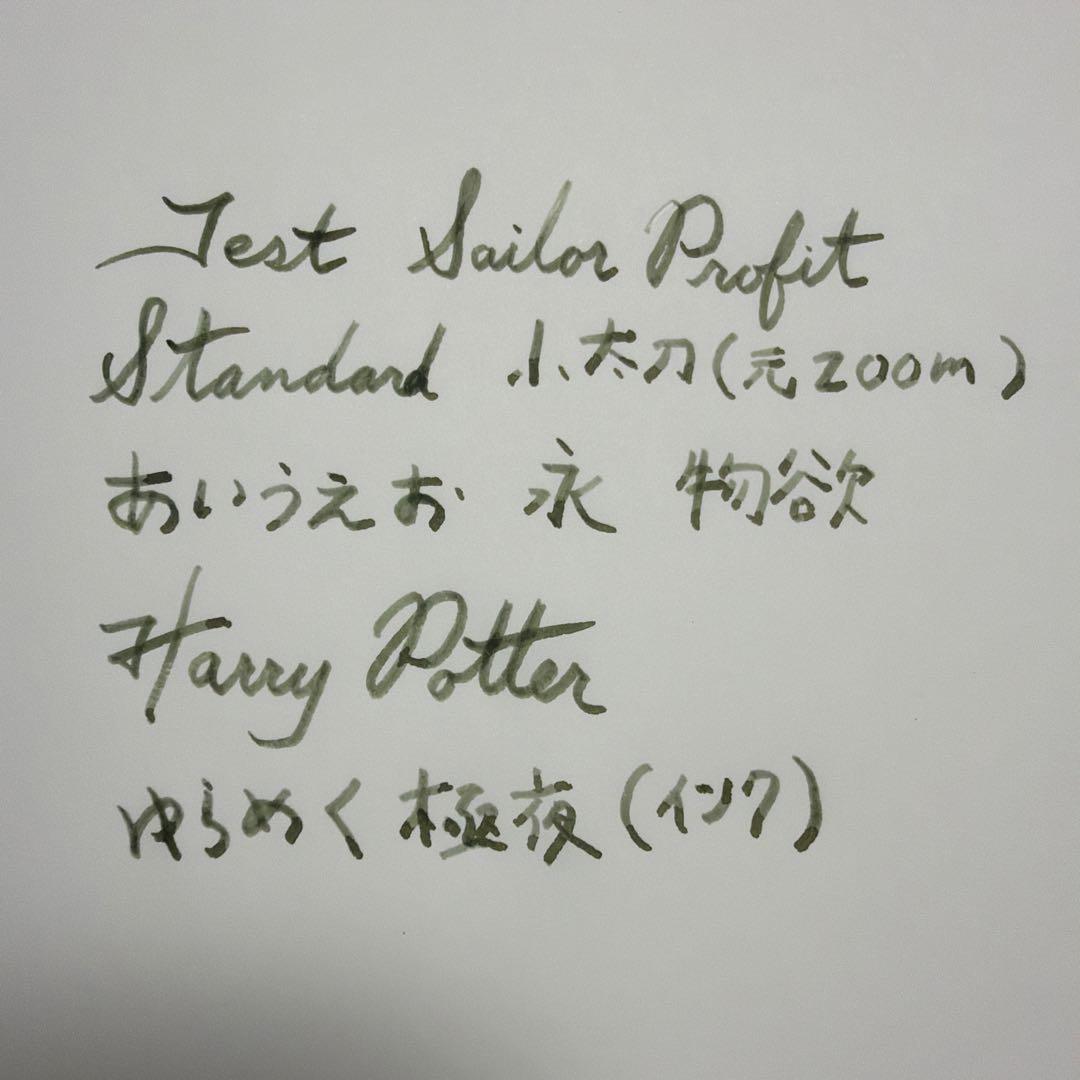 Test Sailor Profit
Standard 小太刀(元zoom)
あいうえお 永 物欲
Harry Potter
ゆらめく極夜(インク)